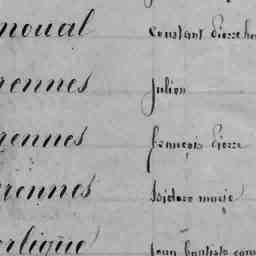 noual Constant Pierre
rennes Julien
rennes françois Pierre
rennes Isidore marie
erligué Jean baptiste